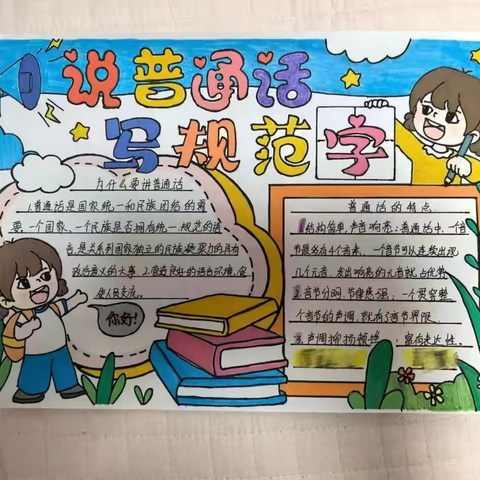 说普通话
写规范字
为什么要讲普通话
1.普通话是国家统一和民族团结的需
要。一个国家、一个民族是否拥有统一、规范的语
言是关系到国家独立的民族凝聚力的具有
政治意义的大事。2.营造良好的语言环境,促
使人民交流。
你好!
普通话的特点
1.结构简单,声音响亮:普通话中,一个音
节最多有4个音素,一个音节可以连续出现
几个元音,发出响亮的元音就占优势
2.音节分明,节律感强:一个最完整
个音节的声调,就有了音节界限。
3.声调抑扬顿挫:富有表达性。